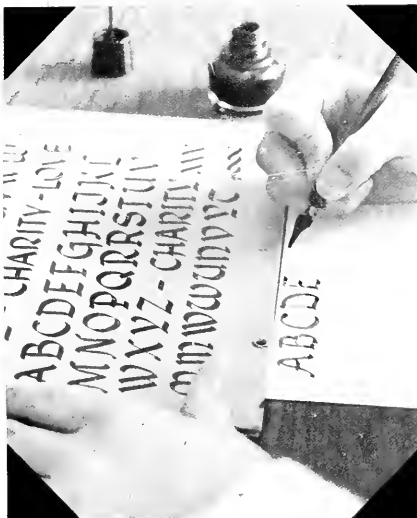 - CHARITY-LOVE
ABCDEFGHIJKL
MNOPQRRSTUV
WXYZ - CHARITY
ABCDE